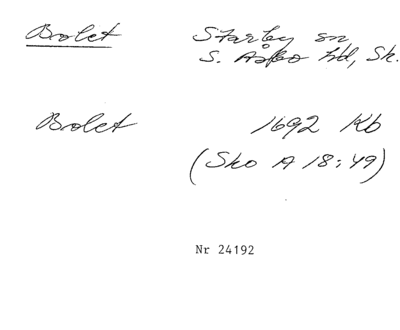 Bolet Starby sn
S. Åsbo hd, Sk.
Bolet 1692 Kb
(Sko A 18:49)
Nr 24192